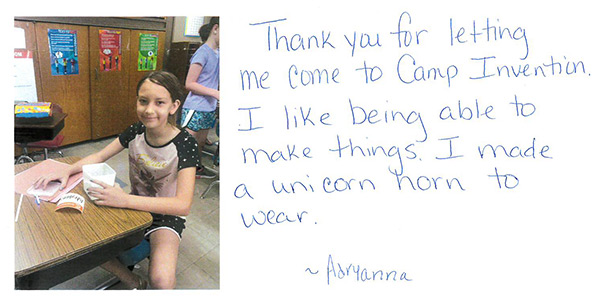 Thank you for letting
me come to Camp Invention.
I like being able to
make things. I made
a unicorn horn to
wear.
~ Adryanna